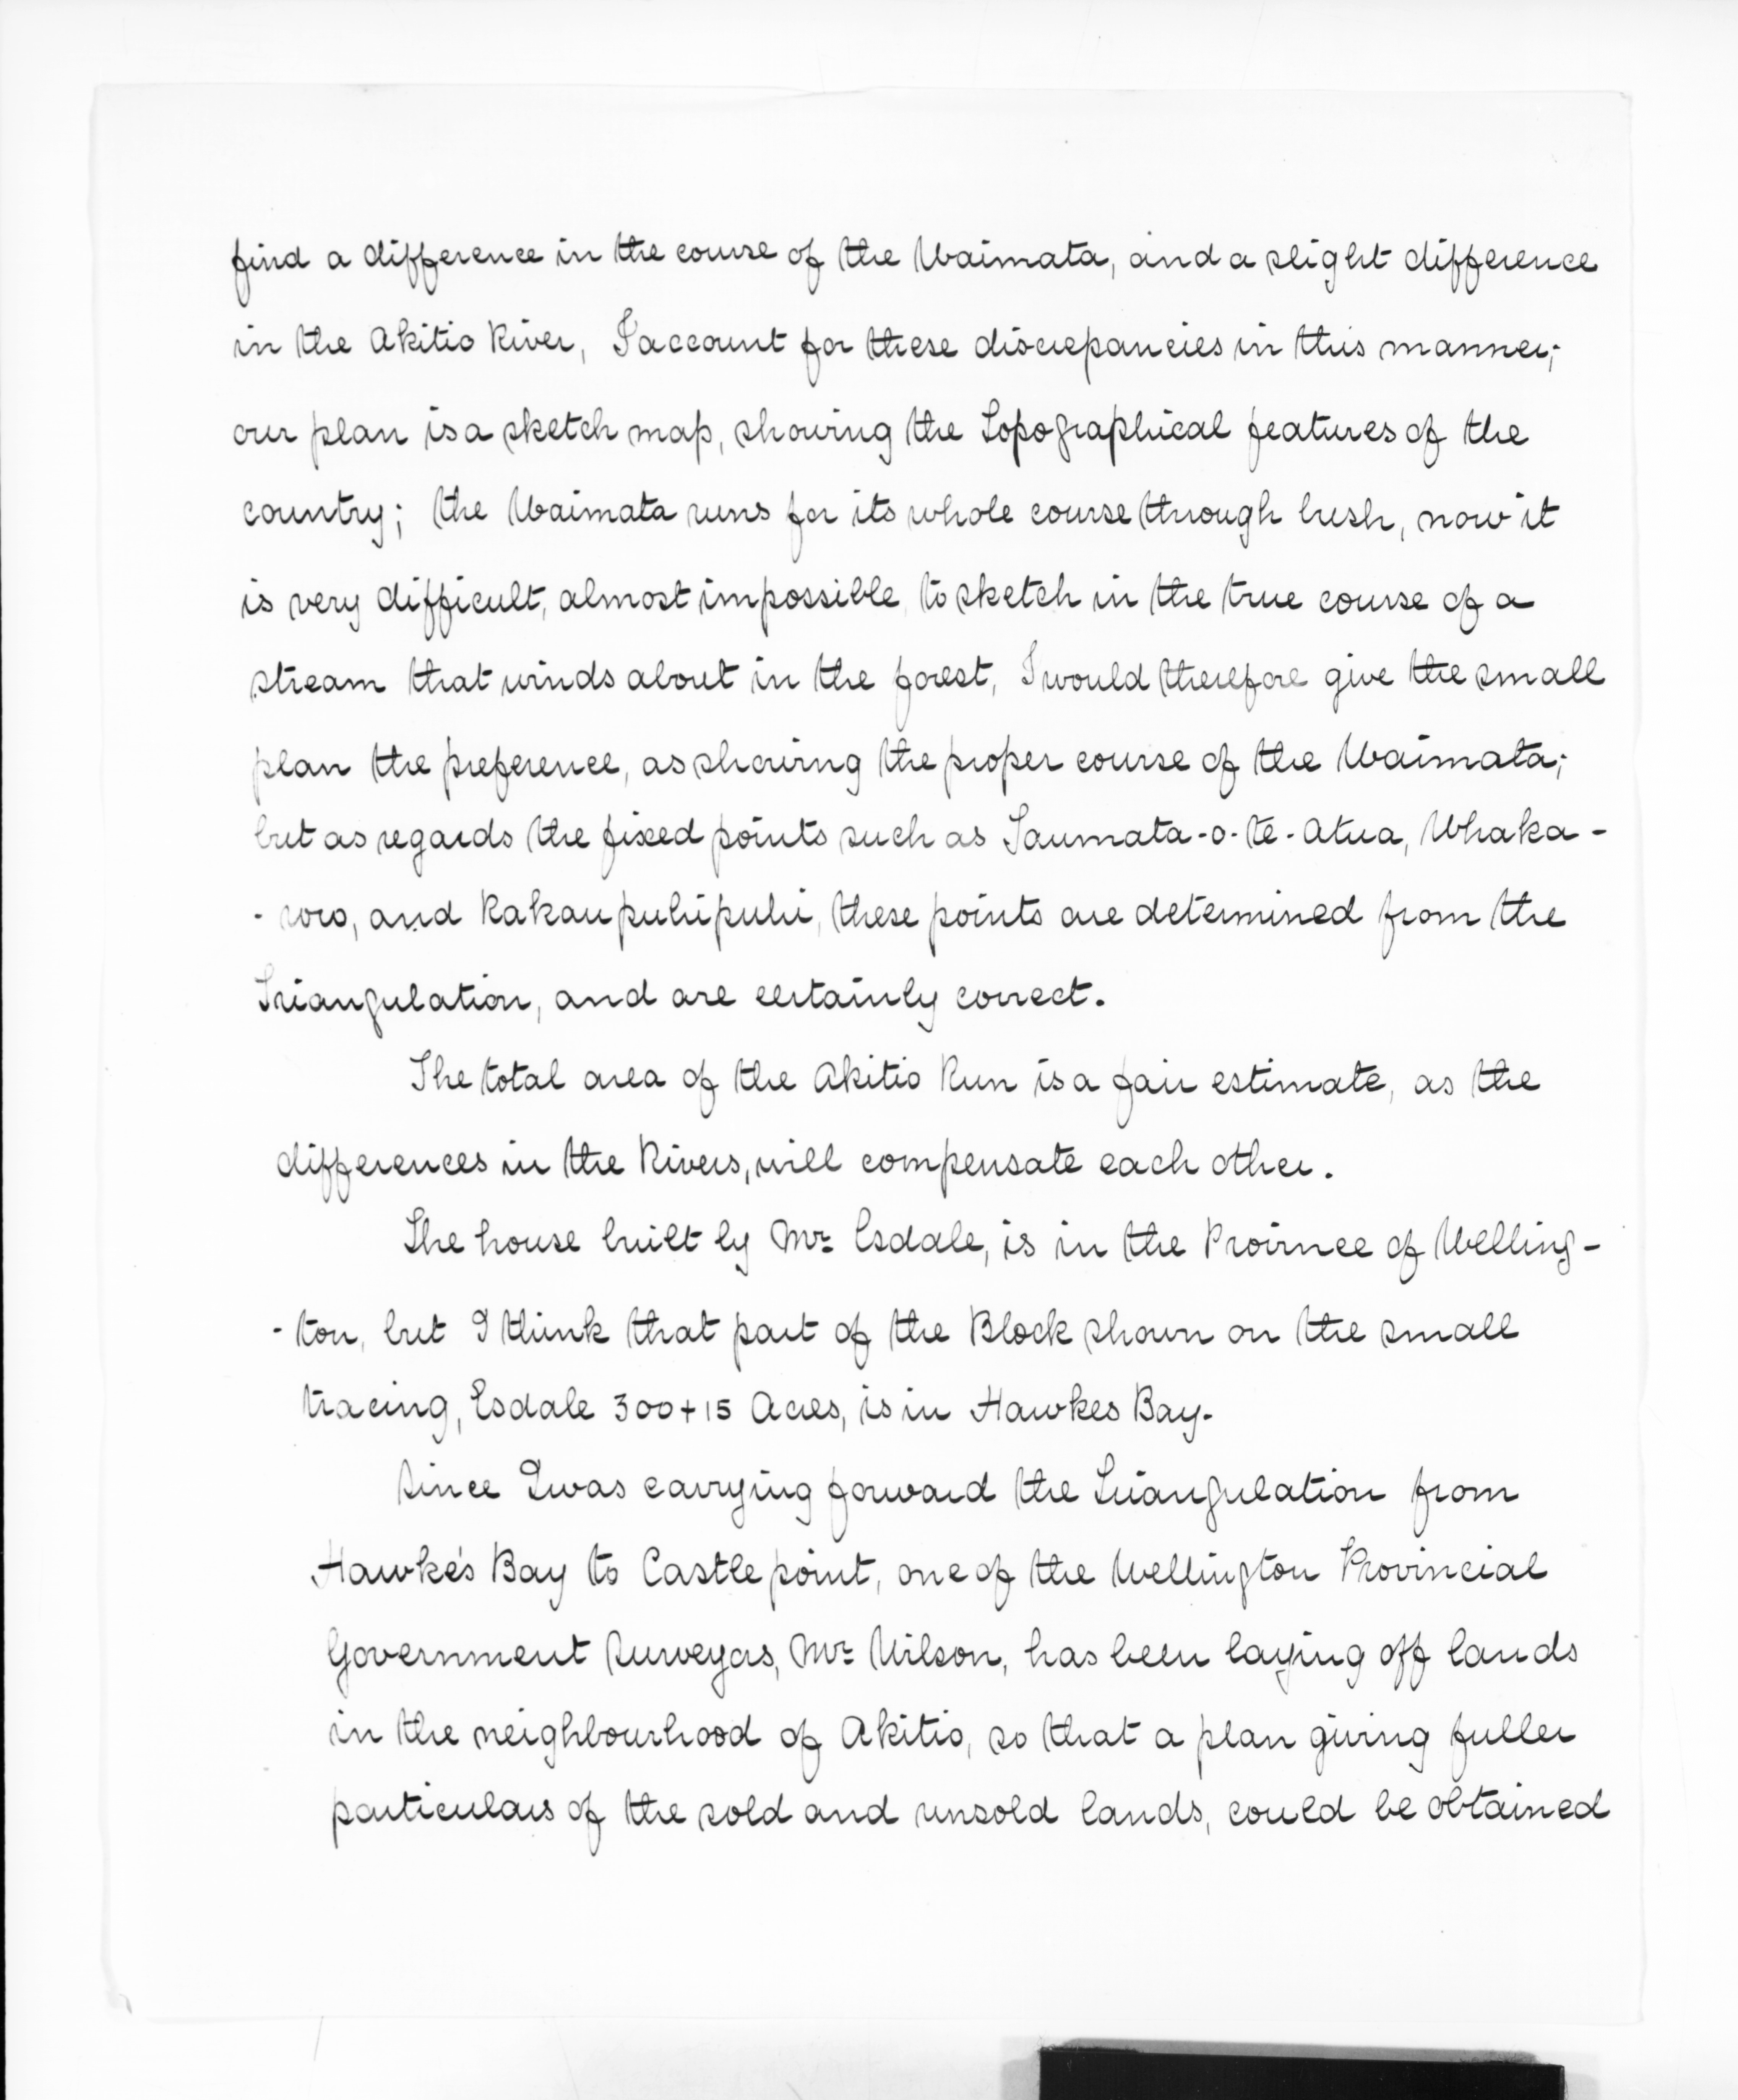 find a difference in the course of the Waimata, and a slight difference
in the Akitio River, I account for these discrepancies in this manner;
our plan is a sketch map, showing the Topographical features of the
country; the Waimata runs for its whole course through bush, now it
is very difficult, almost impossible, to sketch in the true course of a
stream that winds about in the forest, I would therefore give the small
plan the preference, as showing the proper course of the Waimata;
but as regards the fixed points such as Taumata-o-te-Atua, Whaka-
-roro, and Rakaupuhipuhi, these points are determined from the
Triangulation, and are certainly correct.
The total area of the Akitio Run is a fair estimate, as the
differences in the Rivers, will compensate each other.
The house built by Mr. Esdale, is in the Province of Welling-
-ton, but I think that part of the Block shown on the small
tracing, Esdale 300+15 Acres, is in Hawkes Bay.
Since I was carrying forward the Triangulation from
Hawke's Bay to Castle point, one of the Wellington Provincial
Government Surveyors, Mr. Wilson, has been laying off lands
in the neighbourhood of Akitio, so that a plan giving fuller
particulars of the sold and unsold lands, could be obtained